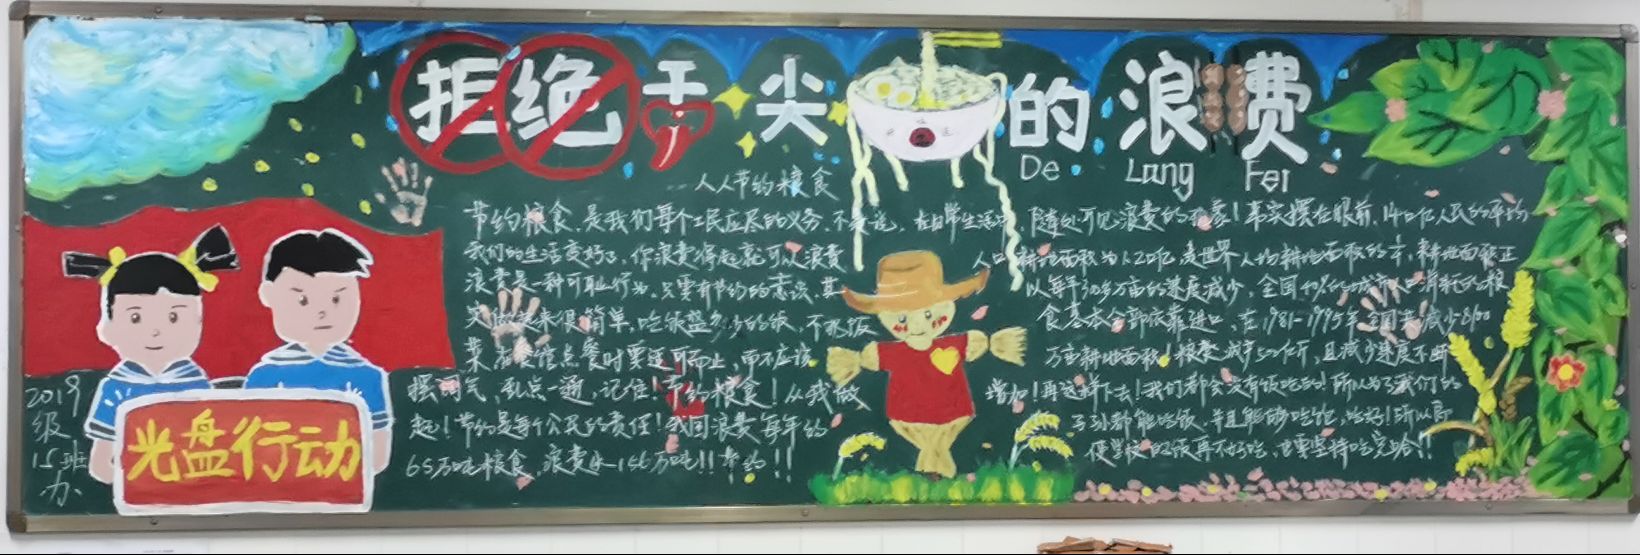 拒绝舌尖的浪费
De Lang Fei
人人节约粮食
节约粮食,是我们每个工民应尽的义务,不要说,在日常生活中,
我们的生活变好了,你浪费得起就可以浪费
浪费是一种可耻行为,只要有节约的意识,其
实做起来很简单,吃饭盛多少的饭,不剩饭
菜,在餐馆点餐时要适可而止,而不应该
摆阔气,乱点一通,记住!节约粮食!从我做
起!节约是每个公民的责任!我国浪费每年的
65万吨粮食,浪费
随处可见浪费的现象!事实摆在眼前,14亿人民的平均
人口耕地面积为1.2亩,是世界人均耕地面积的
耕地面积正
以每年 万亩的速度减少,全国
城市人口消耗的粮
食基本全部依靠进口,在1981-1995年全国共减少8100
万亩耕地面积!粮食减产
且减少速度不断
增加!再这样下去!我们都会没有饭吃的!所以为了我们的
子孙都能吃饭,并且能够吃饱,吃好!所以即
使学校的饭再不好吃,也要坚持吃完哈!!
2019
级
15班
办
光盘行动